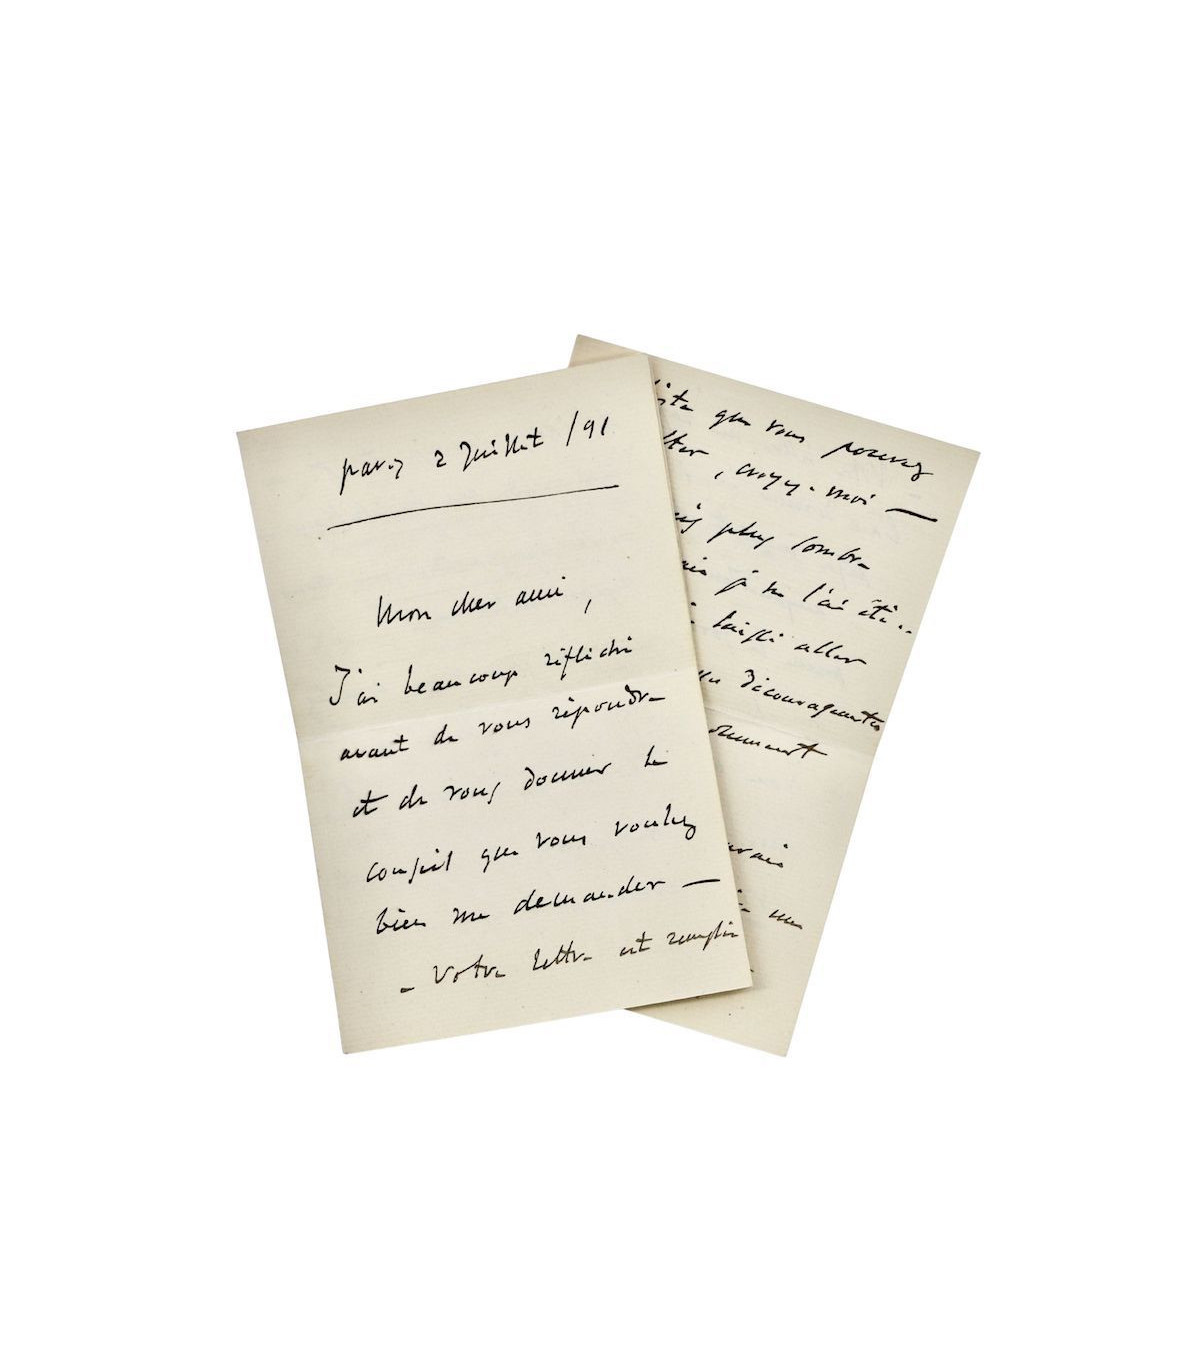 paris 2 Juillet /91
Mon cher ami,
J'ai beaucoup réfléchi
avant de vous répondre
et de vous donner le
conseil que vous voulez
bien me demander —
- Votre lettre est remplie
que vous pouvez
, croyez-moi —
plus sombre
je ne l'ai été..
laissé aller
décourageantes
me